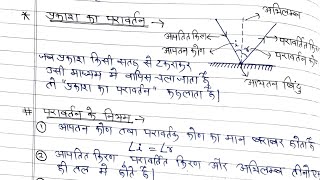 * प्रकाश का परावर्तन
अभिलम्ब
आपतित किरण
आपतन कोण
परावर्तित किरण
परावर्तन कोण
i r
आपतन बिंदु
जब प्रकाश किसी सतह से टकराकर
उसी माध्यम में वापिस चला जाता है
तो "प्रकाश का परावर्तन" कहलाता है।
# परावर्तन के नियम
① आपतन कोण तथा परावर्तक कोण का मान बराबर होता है
∠i = ∠r
② आपतित किरण परावर्तित किरण और अभिलम्ब तीनों एक
ही तल में होते हैं।